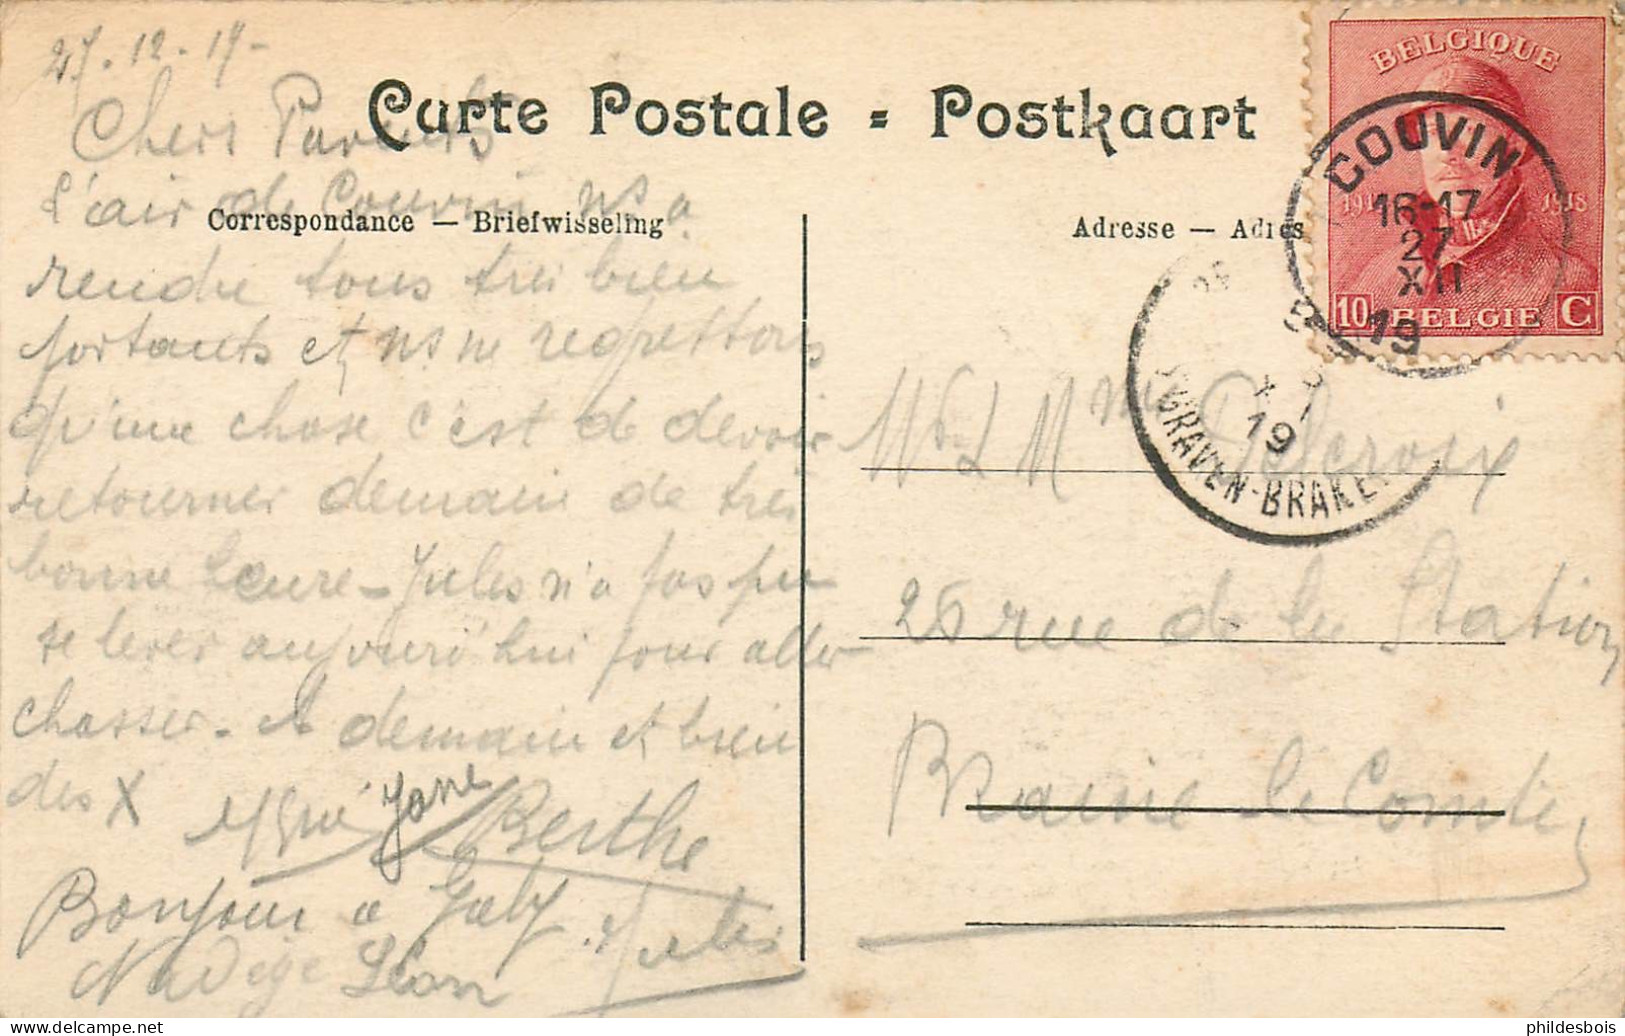 27-12-19-
Carte Postale = Postkaart
Chers Parents
Correspondance — Briefwisseling
Adresse — Adres
l'air de Couvin ns a
rendu tous très bien
portants et ns ne regrettons
qu'une chose c'est de devoir
retourner demain de très
bonne heure - Jules n'a pas pu
se lever aujourd'hui pour aller
chasser. A demain et bien
des X
Jane
Berthe
Bonjour à Gaby
Jules
Nadège Léon
BELGIQUE
1914 1918
10 BELGIE C
COUVIN
16-17
27
XII
19
19
'S GRAVEN-BRAKEL
Mr & Mme Delcroix
26 rue de la Station
Braine le Comte
phildesbois